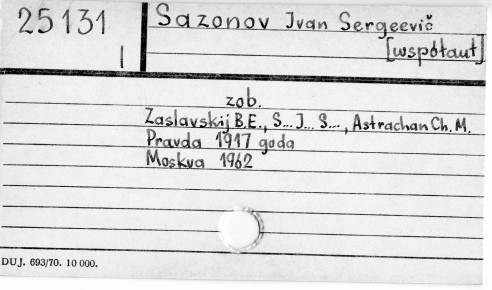 25131
I
Sazonov Ivan Sergeevič
[współaut]
zob.
Zaslavskij B.E., S... J... S..., Astrachan Ch. M.
Pravda 1917 goda
Moskva 1962
DUJ. 693/70. 10 000.